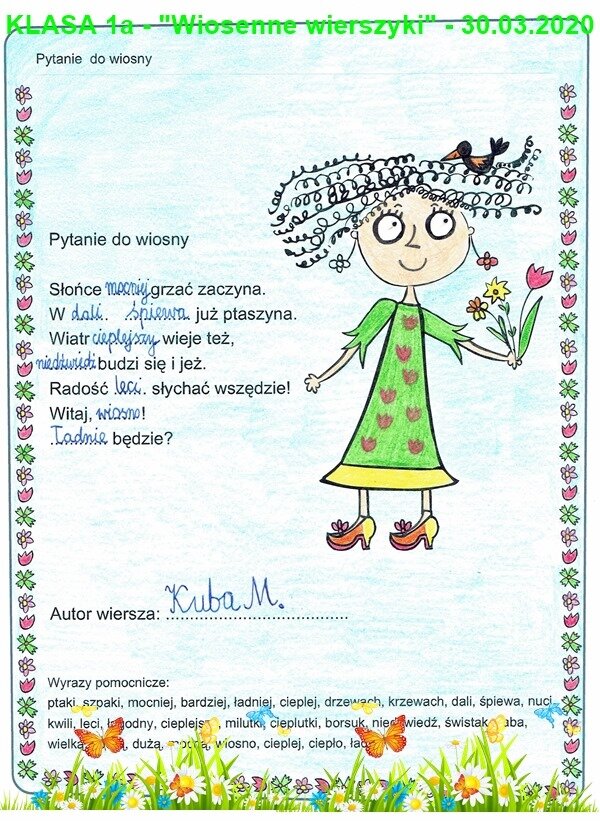 KLASA 1a - "Wiosenne wierszyki" - 30.03.2020
Pytanie do wiosny
Pytanie do wiosny
Słońce mocniej grzać zaczyna.
W dali. śpiewa już ptaszyna.
Wiatr cieplejszy wieje też,
niedźwiedź budzi się i jeż.
Radość leci. słychać wszędzie!
Witaj, wiosno!
Ładnie będzie?
Autor wiersza: Kuba M.
Wyrazy pomocnicze:
ptaki, szpaki, mocniej, bardziej, ładniej, cieplej, drzewach, krzewach, dali, śpiewa, nuci
kwili, leci, łagodny, cieplejszy, milutki, cieplutki, borsuk, niedźwiedź, świstak, żaba,
wielką, dużą, mocną, wiosno, cieplej, ciepło,